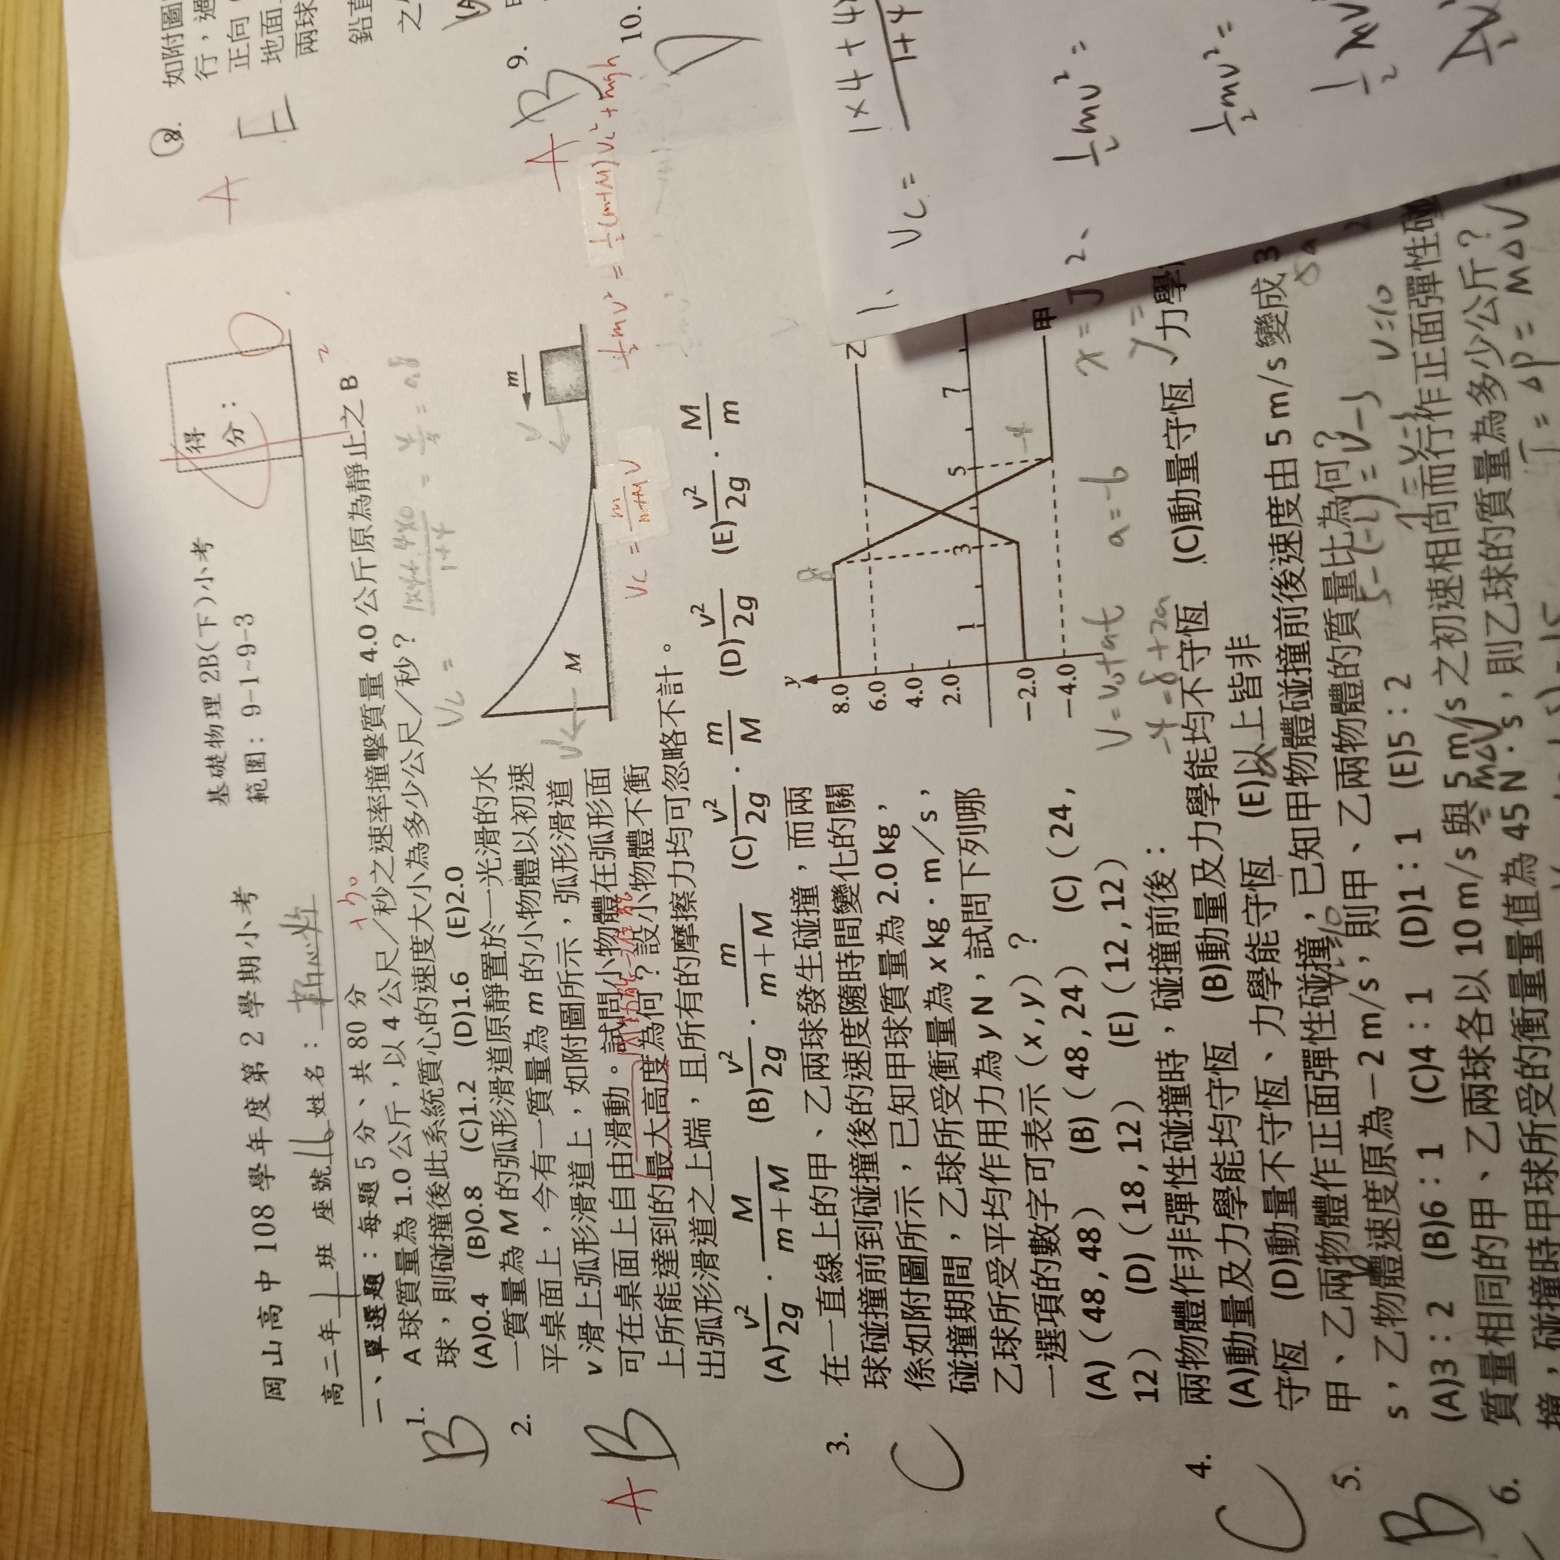 岡山高中 108 學年度第 2 學期小考 基礎物理 2B(下)小考
範圍：9-1~9-3
得分：
高二年 1 班 座號 16 姓名：
一、單選題：每題 5 分、共 80 分
B 1. A 球質量為 1.0 公斤，以 4 公尺／秒之速率撞擊質量 4.0 公斤原為靜止之 B
球，則碰撞後此系統質心的速度大小為多少公尺／秒？
(A)0.4 (B)0.8 (C)1.2 (D)1.6 (E)2.0
A B 2. 一質量為 M 的弧形滑道原靜置於一光滑的水
平桌面上，今有一質量為 m 的小物體以初速
v 滑上弧形滑道上，如附圖所示，弧形滑道
可在桌面上自由滑動。試問小物體在弧形面
上所能達到的最大高度為何？設小物體不衝
出弧形滑道之上端，且所有的摩擦力均可忽略不計。
M m v
Vc = m/m+M V
½mv² = ½(m+M)Vc² + mgh
(A) v²/2g · M/m+M (B) v²/2g · m/m+M (C) v²/2g · m/M (D) v²/2g (E) v²/2g · M/m
C 3. 在一直線上的甲、乙兩球發生碰撞，而兩
球碰撞前到碰撞後的速度隨時間變化的關
係如附圖所示，已知甲球質量為 2.0 kg，
碰撞期間，乙球所受衝量為 x kg．m／s，
乙球所受平均作用力為 y N，試問下列哪
一選項的數字可表示（x , y）？
(A)（48 , 48） (B)（48 , 24） (C)（24 ,
12） (D)（18 , 12） (E)（12 , 12）
y
8.0
6.0
4.0
2.0
−2.0
−4.0
1 3 5 7
乙
甲
V = V₀+at a = -6
-4 = 8 + 2a
C 4. 兩物體作非彈性碰撞時，碰撞前後：
(A)動量及力學能均守恆 (B)動量及力學能均不守恆 (C)動量守恆、力學
守恆 (D)動量不守恆、力學能守恆 (E)以上皆非
B 5. 甲、乙兩物體作正面彈性碰撞，已知甲物體碰撞前後速度由 5 m/s 變成 3
s，乙物體速度原為－2 m/s，則甲、乙兩物體的質量比為何？
(A)3：2 (B)6：1 (C)4：1 (D)1：1 (E)5：2
5-(-2) = V-3 V=10
6. 質量相同的甲、乙兩球各以 10 m/s 與 5 m/s 之初速相向而行作正面彈性碰
撞，碰撞時甲球所受的衝量量值為 45 N．s，則乙球的質量為多少公斤？
A E 8. 如附圖
行，
正向
地面
兩球
鉛直
之
A B 9.
D 10.
1、 Vc = 1×4+4×/1+4
2、 ½mv² =
½mv² =
½mv